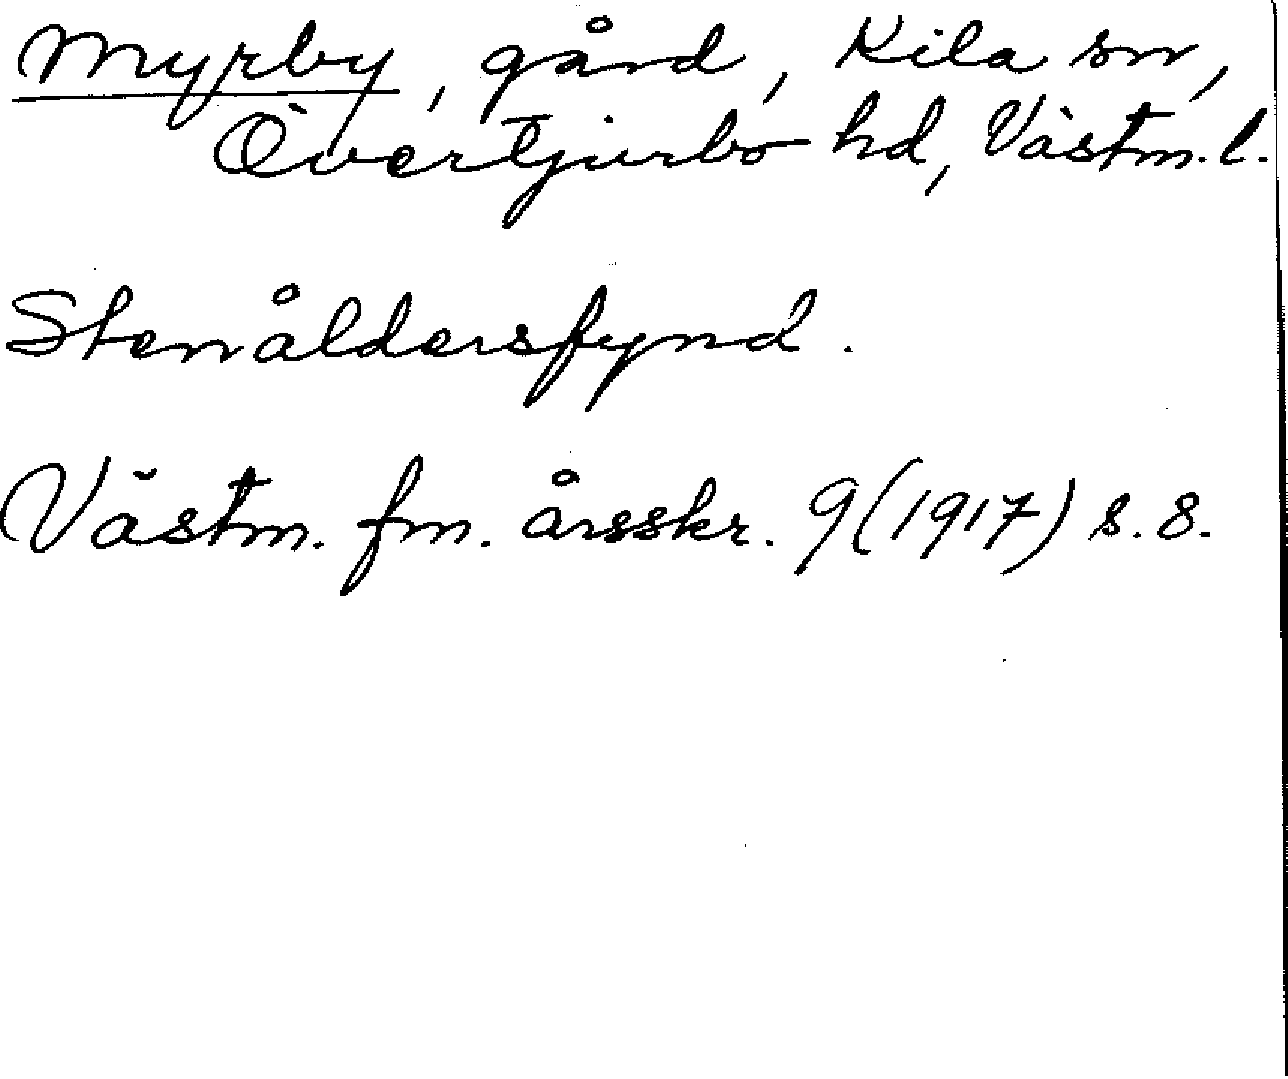 Myrby, gård, Kila sn,
Övertjurbo hd, Västm. l.
Stenåldersfynd.
Västm. fm. årsskr. 9 (1917) s. 8.